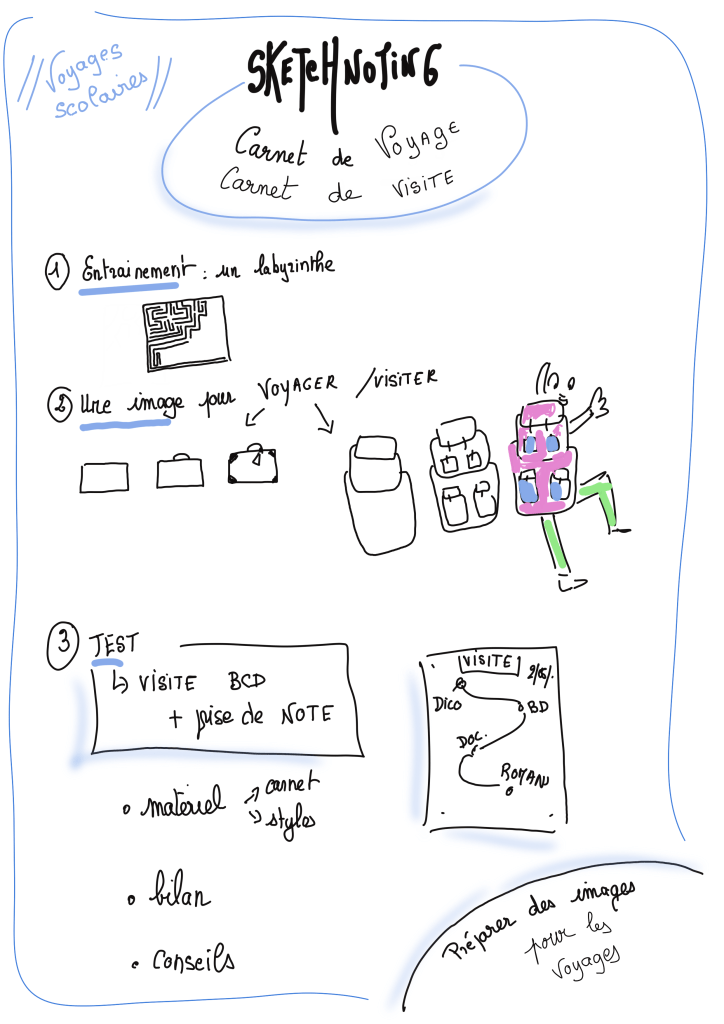 Voyages
scolaires
SKETCHNOTING
Carnet de VOYAGE
Carnet de VISITE
1 Entrainement : un labyrinthe
2 Une image pour VOYAGER / VISITER
3 TEST
↳ VISITE BCD
+ prise de NOTE
• matériel → carnet
→ styles
• bilan
• conseils
VISITE
2/05/.
DICO
BD
DOC.
ROMAN
Préparer des images
pour les
voyages